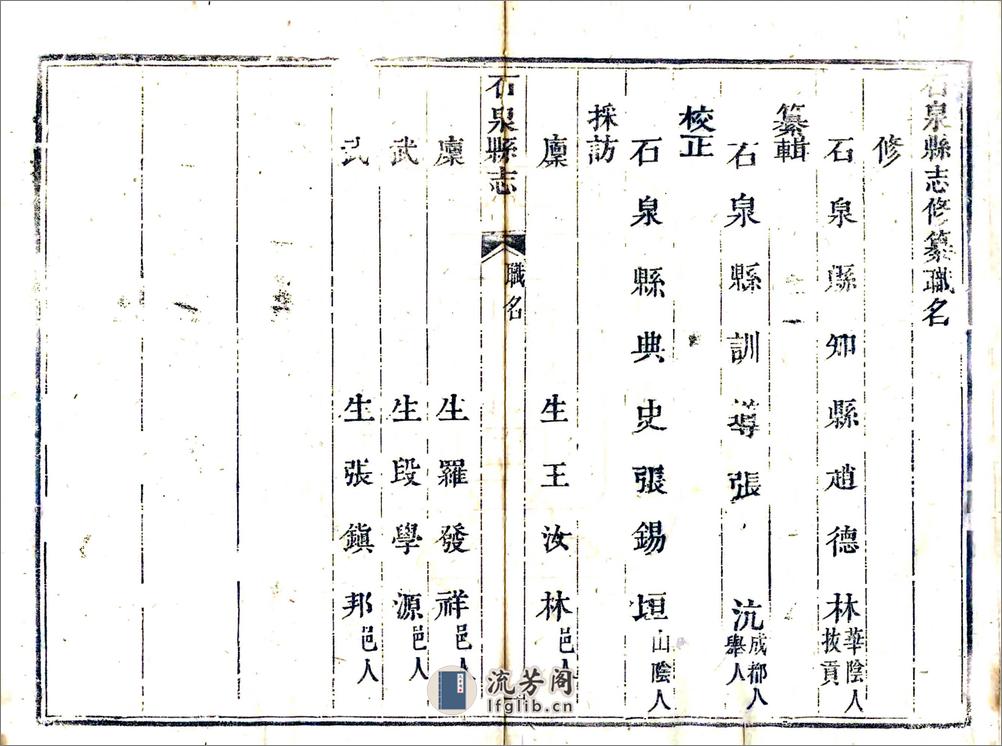 石泉縣志修纂職名
修
石泉縣知縣趙德林華陰人拔貢
纂輯
石泉縣訓導張沆成都人舉人
校正
石泉縣典史張錫垣山陰人
採訪
廩生王汝林邑人
石泉縣志 職名
廩生羅發祥邑人
武生段學源邑人
武生張鎮邦邑人
流芳阁
lfglib.cn